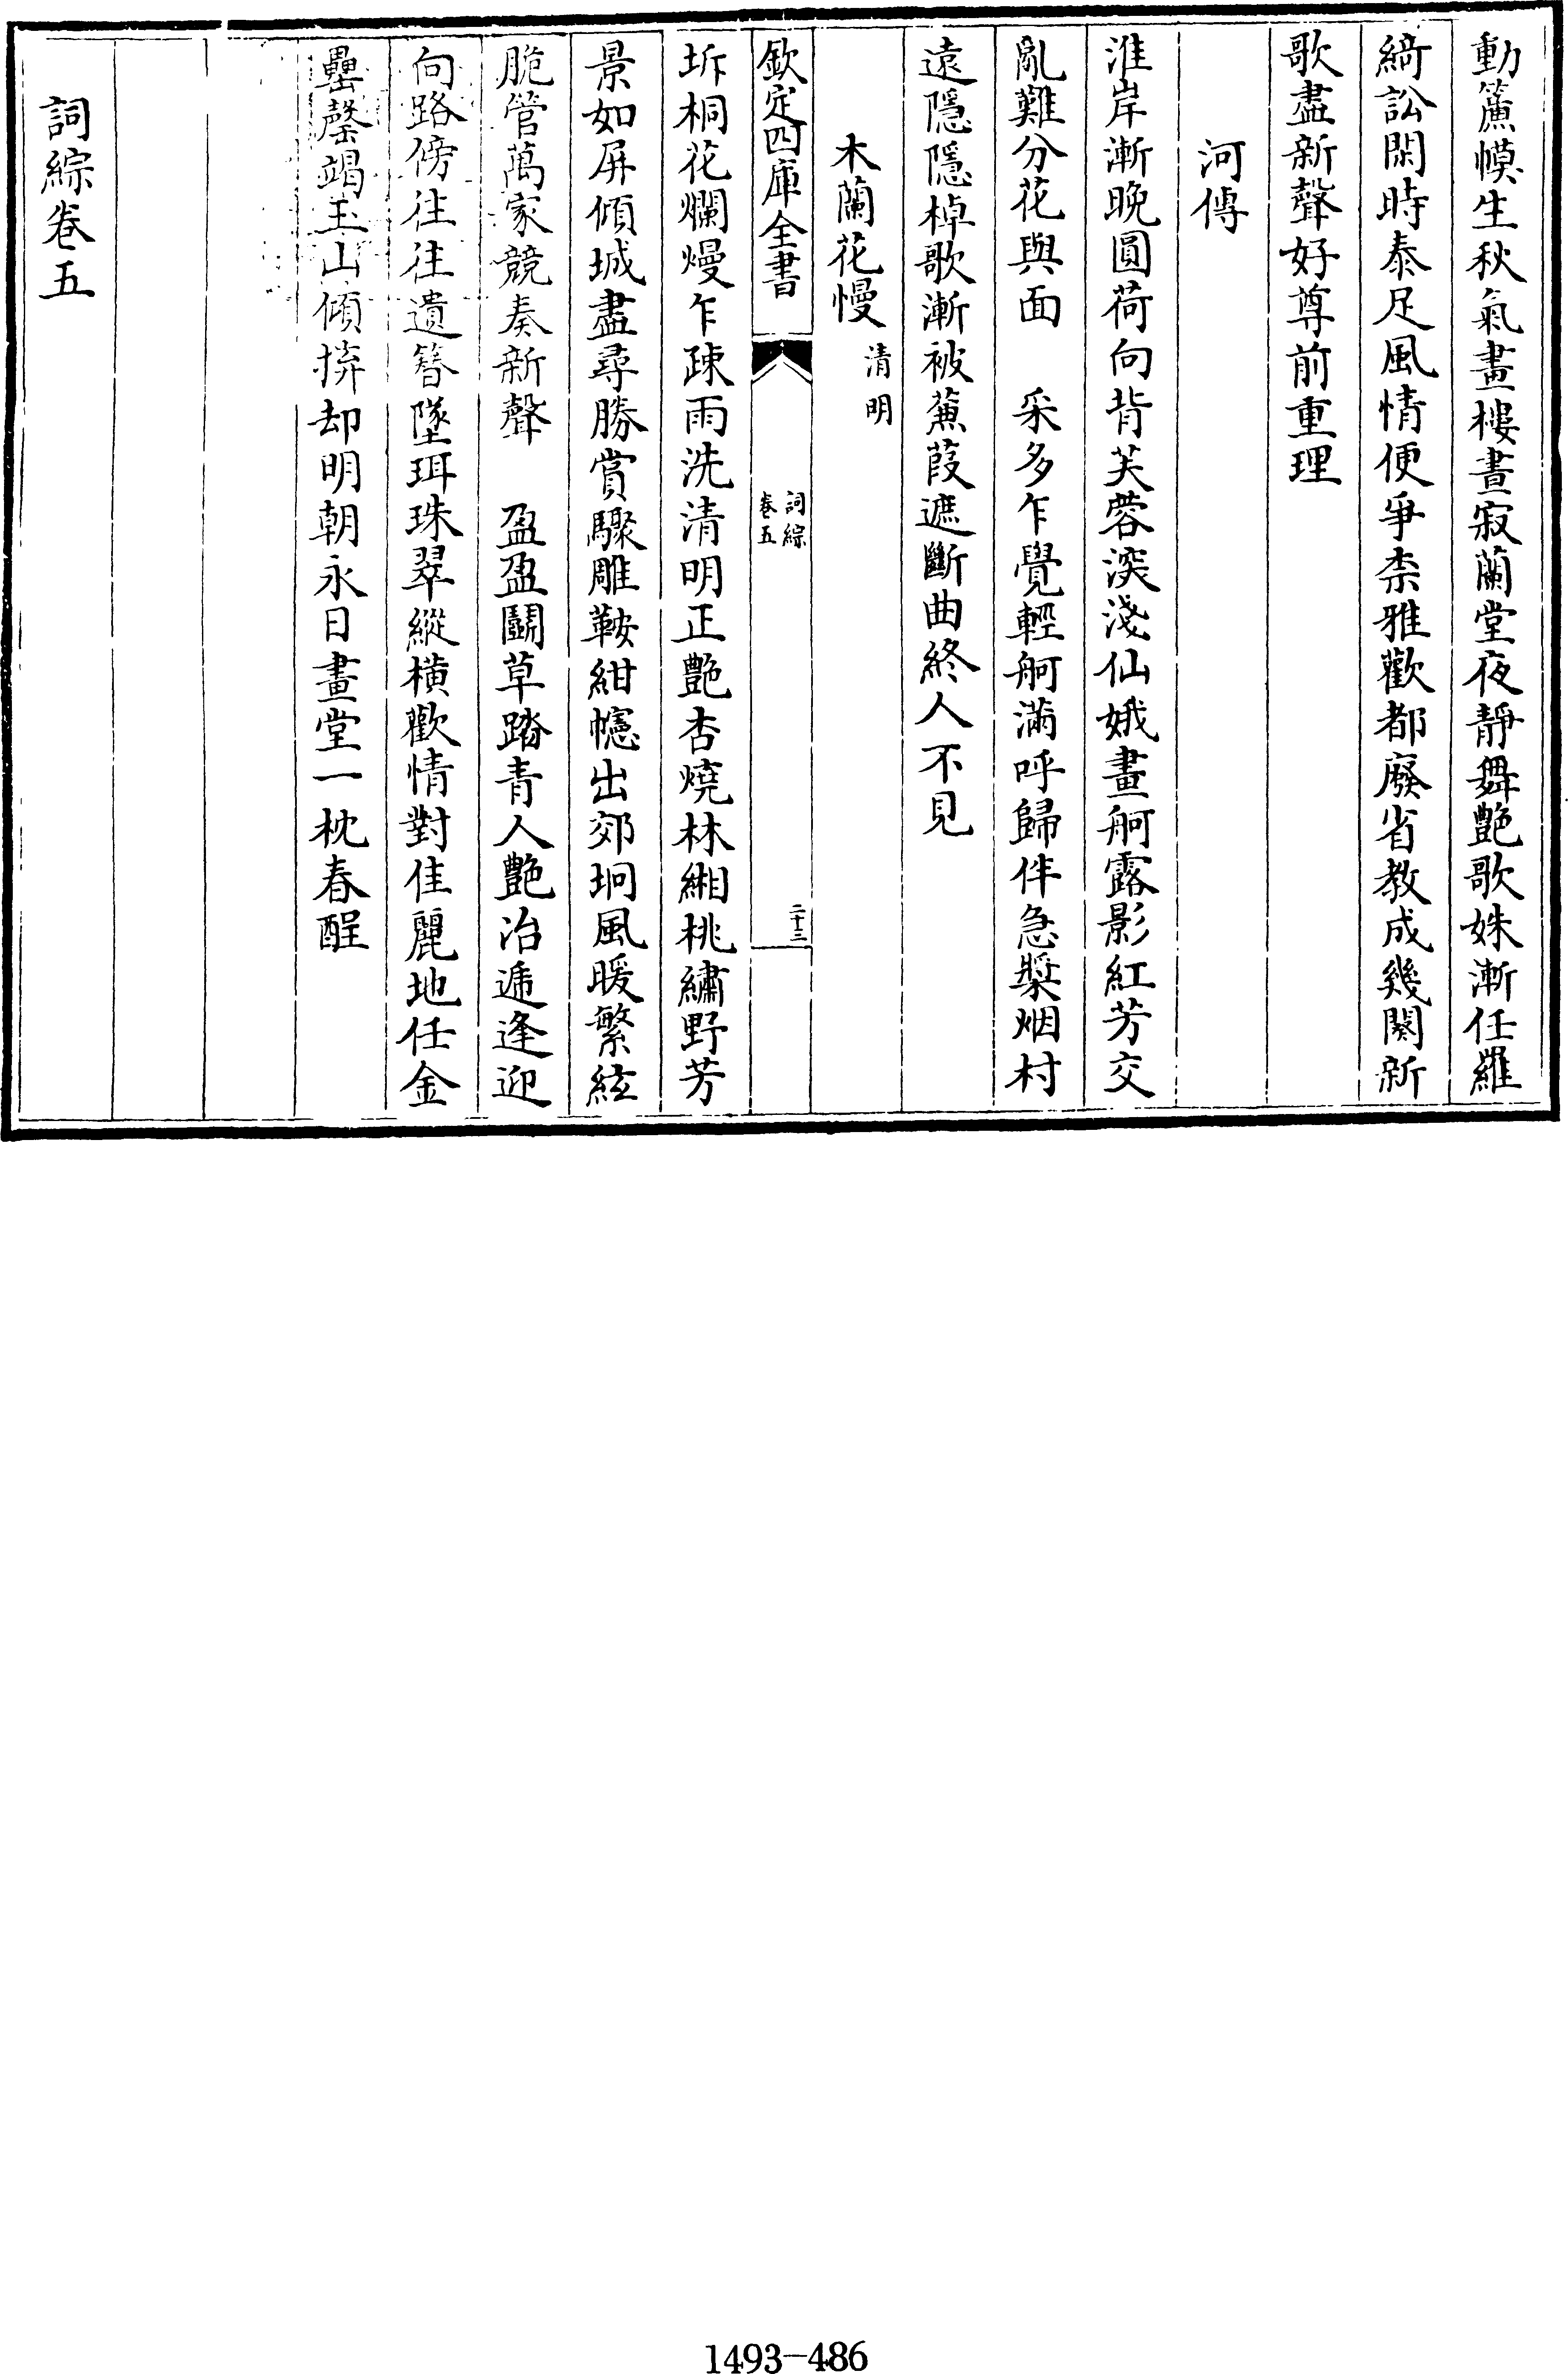 動簾幙生秋氣畫樓晝寂蘭堂夜靜舞艶歌姝漸任羅
綺訟閑時泰足風情便爭柰雅歡都廢省教成幾闋新
歌盡新聲好尊前重理
河傳
淮岸漸晚圓荷向背芙蓉深淺仙娥畫舸露影紅芳交
亂難分花與面　采多乍覺輕舸滿呼歸伴急槳烟村
遠隱隱棹歌漸被蒹葭遮斷曲終人不見
木蘭花慢 清明
欽定四庫全書
詞綜
卷五
二十三
坼桐花爛熳乍疎雨洗清明正艶杏燒林緗桃繡野芳
景如屏傾城盡尋勝賞驟雕鞍紺幰出郊坰風暖繁絃
脆管萬家競奏新聲　盈盈鬭草踏青人艶冶遞逢迎
向路傍往往遺簪墜珥珠翠縱橫歡情對佳麗地任金
罍罄竭玉山傾拚却明朝永日畫堂一枕春酲
詞綜卷五
1493-486